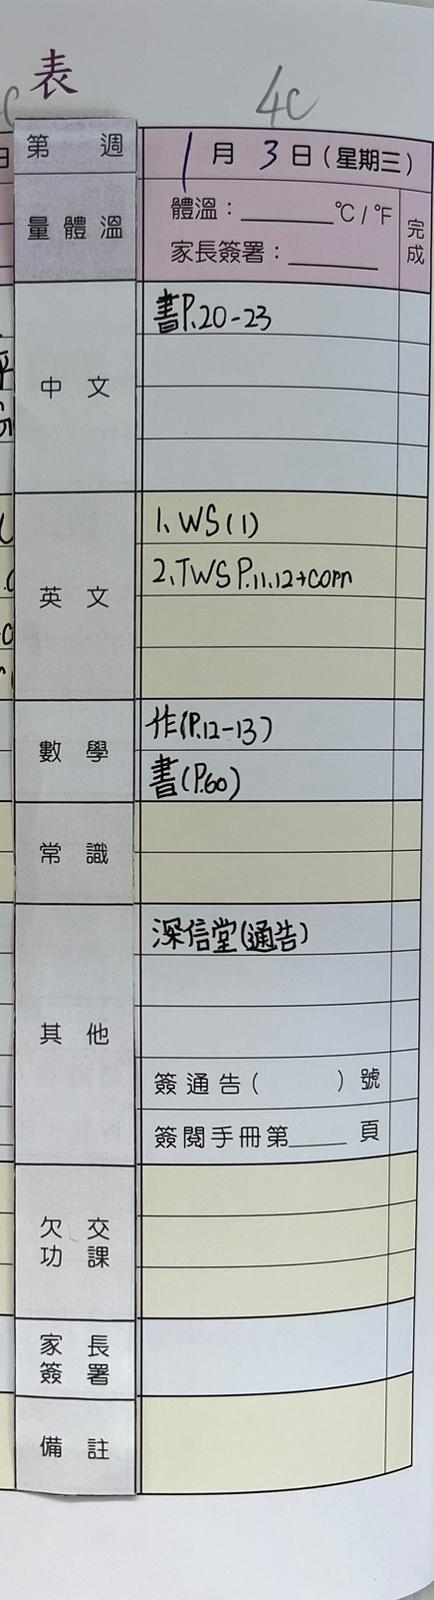 表
4C
第 週
1月3日(星期三)
量體溫
體溫:______℃/℉
家長簽署:______
完成
中文
書P.20-23
英文
1. WS(1)
2. TWS P.11,12+corr
數學
作(P.12-13)
書(P.60)
常識
其他
深信堂(通告)
簽通告( )號
簽閱手冊第____頁
欠交功課
家長簽署
備註